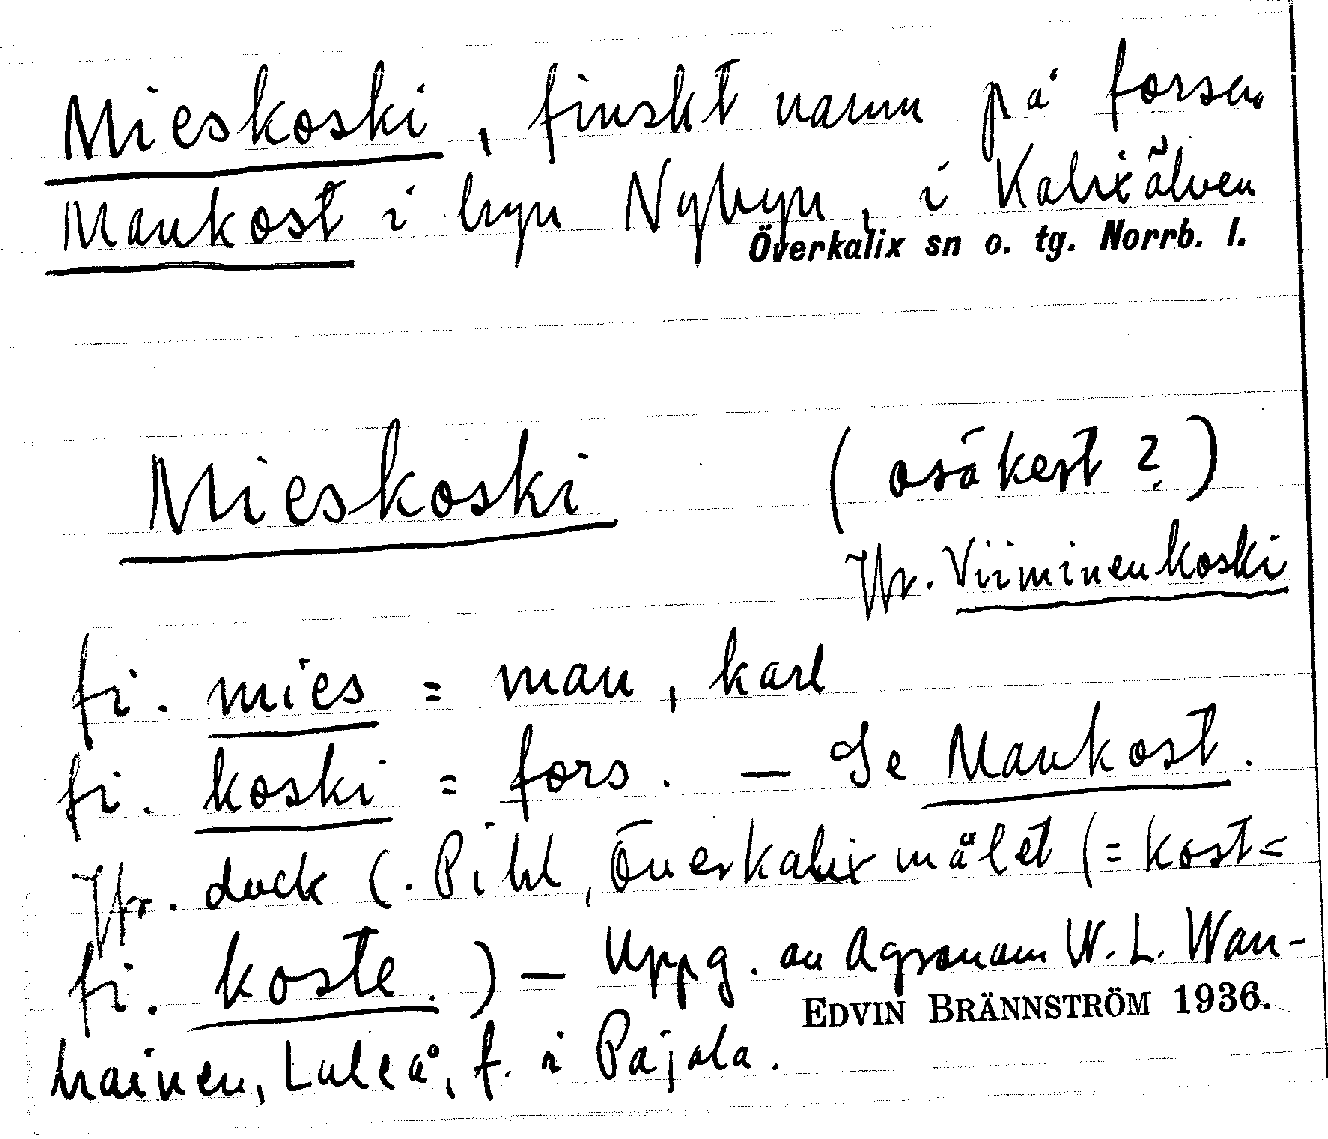 Mieskoski, finskt namn på forsen
Mankost i byn Nybyn, i Kalixälven
Överkalix sn o. tg. Norrb. l.
Mieskoski (osäkert?)
Jfr. Viiminenkoski
fi. mies = man, karl
fi. koski = fors. – Se Mankost.
Jfr. dock C. Pihl, Överkalixmålet (= kost <
fi. koste.) – Uppg. av Agronom W. L. Wan-
EDVIN BRÄNNSTRÖM 1936.
hainen, Luleå, f. i Pajala.